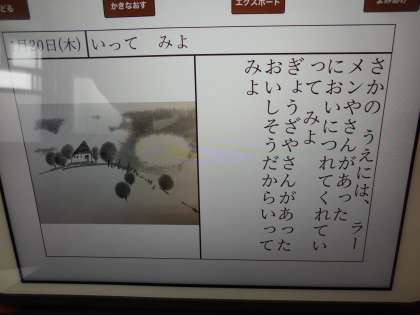 どる
かきなおす
エクスポート
月20日(木)
いって　みよ
さかの　うえには、　ラー
メンやさんがあった
においにつれてくれてい
って　みよ
ぎょうざやさんがあった
おいしそうだからいって
みよ